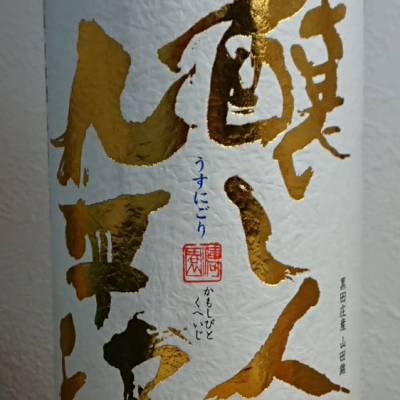 醸し人
九平次
うすにごり
かもしびと
くへいじ
黒田庄産 山田錦